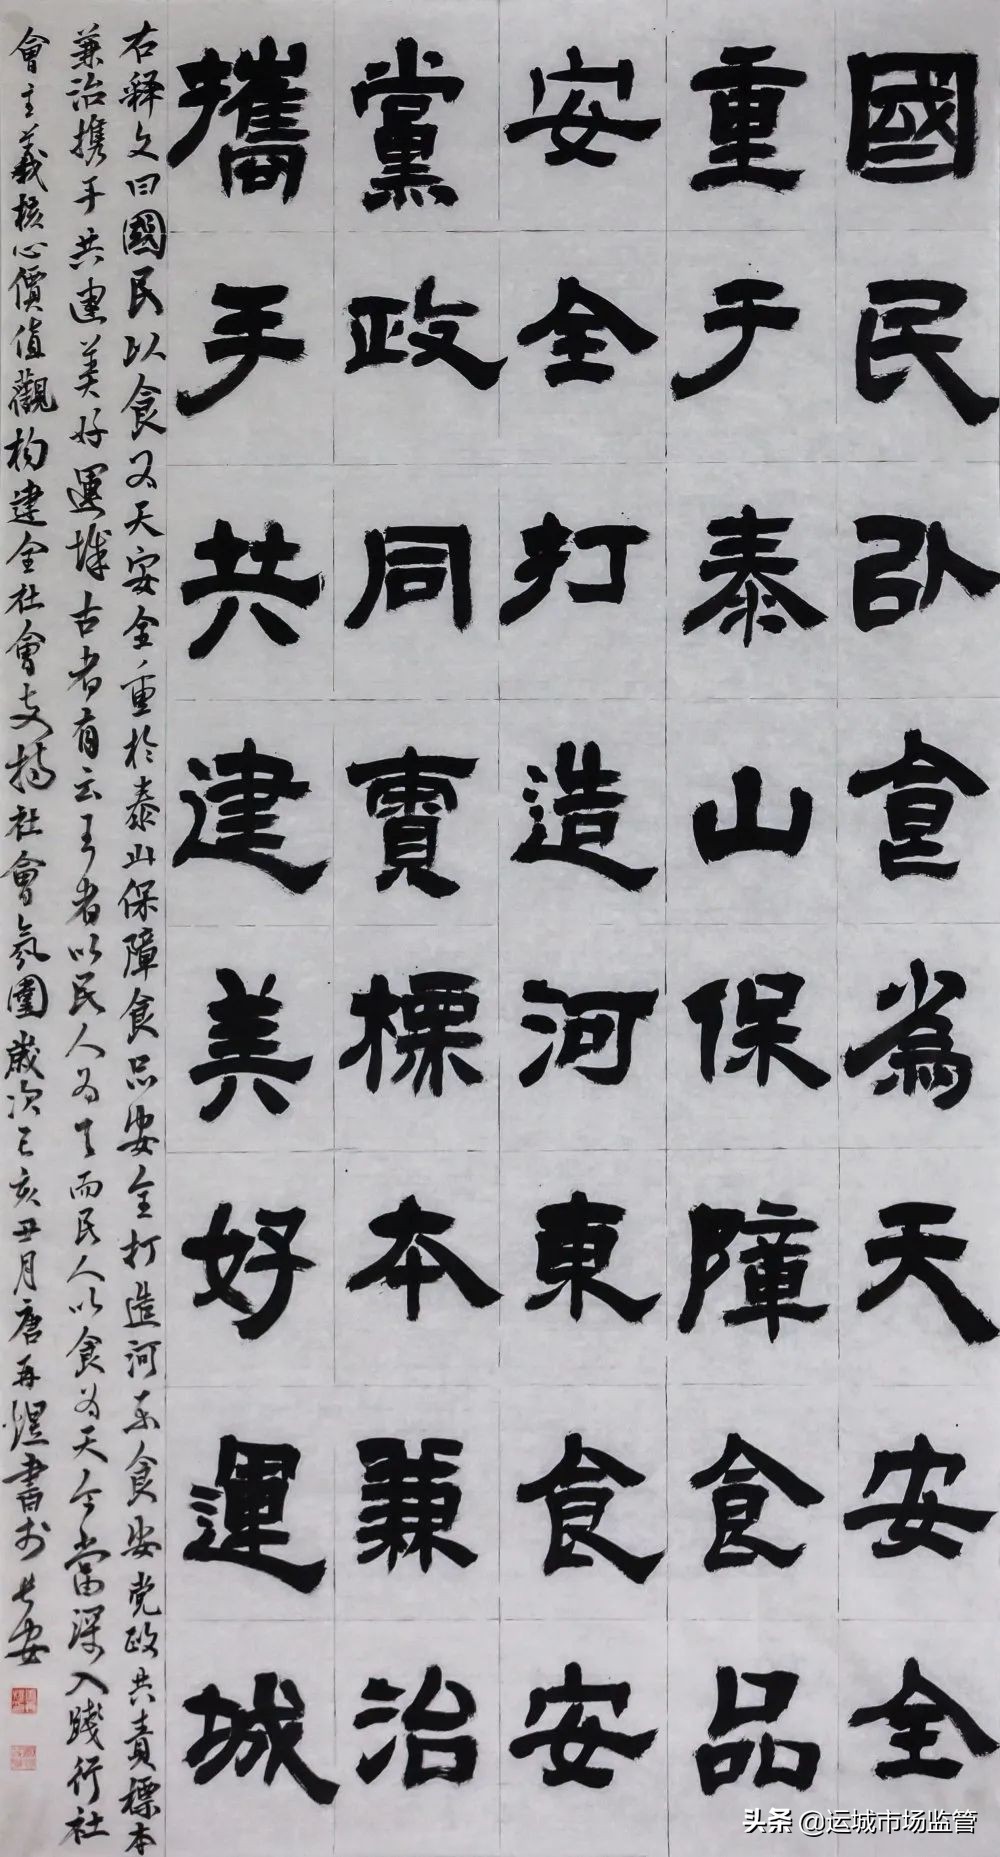 國民以食為天安全
重于泰山保障食品
安全打造河東食安
黨政同責標本兼治
攜手共建美好運城
右释文曰國民以食为天安全重於泰山保障食品安全打造河东食安党政共責標本
兼治携手共建美好運城古者有云王者以民人为天而民人以食为天今當深入践行社
會主義核心價值觀构建全社會支持社會氛圍歲次己亥丑月唐再煜書於长安
头条 @运城市场监管